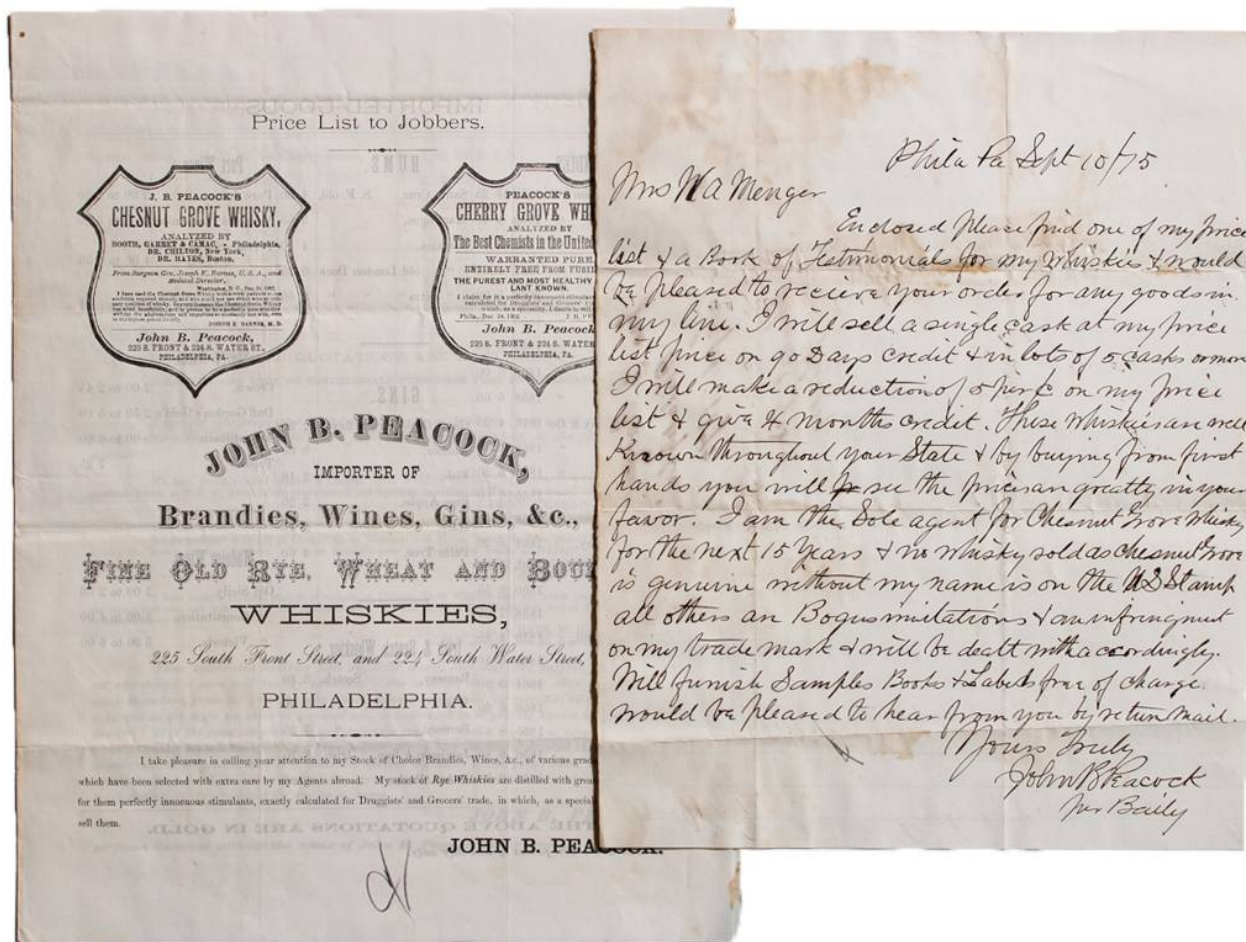 Price List to Jobbers.
J. B. PEACOCK'S
CHESNUT GROVE WHISKY,
ANALYZED BY
BOOTH, GARRET & CAMAC, - Philadelphia,
DR. CHILTON, New York,
DR. HAYES, Boston.
From Surgeon Gen. Joseph K. Barnes, U. S. A., and
Medical Director,
JOSEPH K. BARNES, M. D.
John B. Peacock,
225 S. FRONT & 224 S. WATER ST.,
PHILADELPHIA, PA.
PEACOCK'S
CHERRY GROVE WH
ANALYZED BY
The Best Chemists in the United
WARRANTED PURE,
ENTIRELY FREE FROM FUSIL
THE PUREST AND MOST HEALTHY
LAST KNOWN.
John B. Peacock
225 S. FRONT & 224 S. WATER
PHILADELPHIA, PA.
JOHN B. PEACOCK,
IMPORTER OF
Brandies, Wines, Gins, &c.,
FINE OLD RYE, WHEAT AND BOUR
WHISKIES,
225 South Front Street, and 224 South Water Street,
PHILADELPHIA.
I take pleasure in calling your attention to my Stock of Choice Brandies, Wines, &c., of various grad
which have been selected with extra care by my Agents abroad. My stock of Rye Whiskies are distilled with grea
for them perfectly innocuous stimulants, exactly calculated for Druggists' and Grocers' trade, in which, as a special
sell them.
JOHN B. PEACOCK.
Phila Pa Sept 10/75
Mrs W A Menger
Enclosed please find one of my price
list & a Book of Testimonials for my Whiskies & would
be pleased to recieve your order for any goods in
my line. I will sell a single cask at my price
list price on 90 Days credit & in lots of 5 casks or more
I will make a reduction of 5 per c on my price
list & give 4 months credit. These Whiskies are well
Known throughout your State & by buying from first
hands you will see the prices are greatly in your
favor. I am the Sole agent for Chesnut Grove Whisky
for the next 15 Years & no whisky sold as Chesnut Grove
is genuine without my name is on the US Stamp
all others are Bogus imitations & an infringment
on my trade mark & will be dealt with accordingly.
Will furnish Samples Books & Labels free of charge.
would be pleased to hear from you by return mail.
Yours Truly
John B Peacock
per Baily